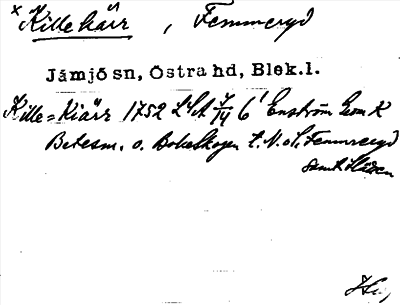 x Killekärr, Femmeryd
Jämjö sn, Östra hd, Blek.l.
Kille=Kiärr 1752 LSA 7/IV 6¹ Enström Geom K
Betesm. o. Bokskogen t. N. o. S. Femmeryd
samt